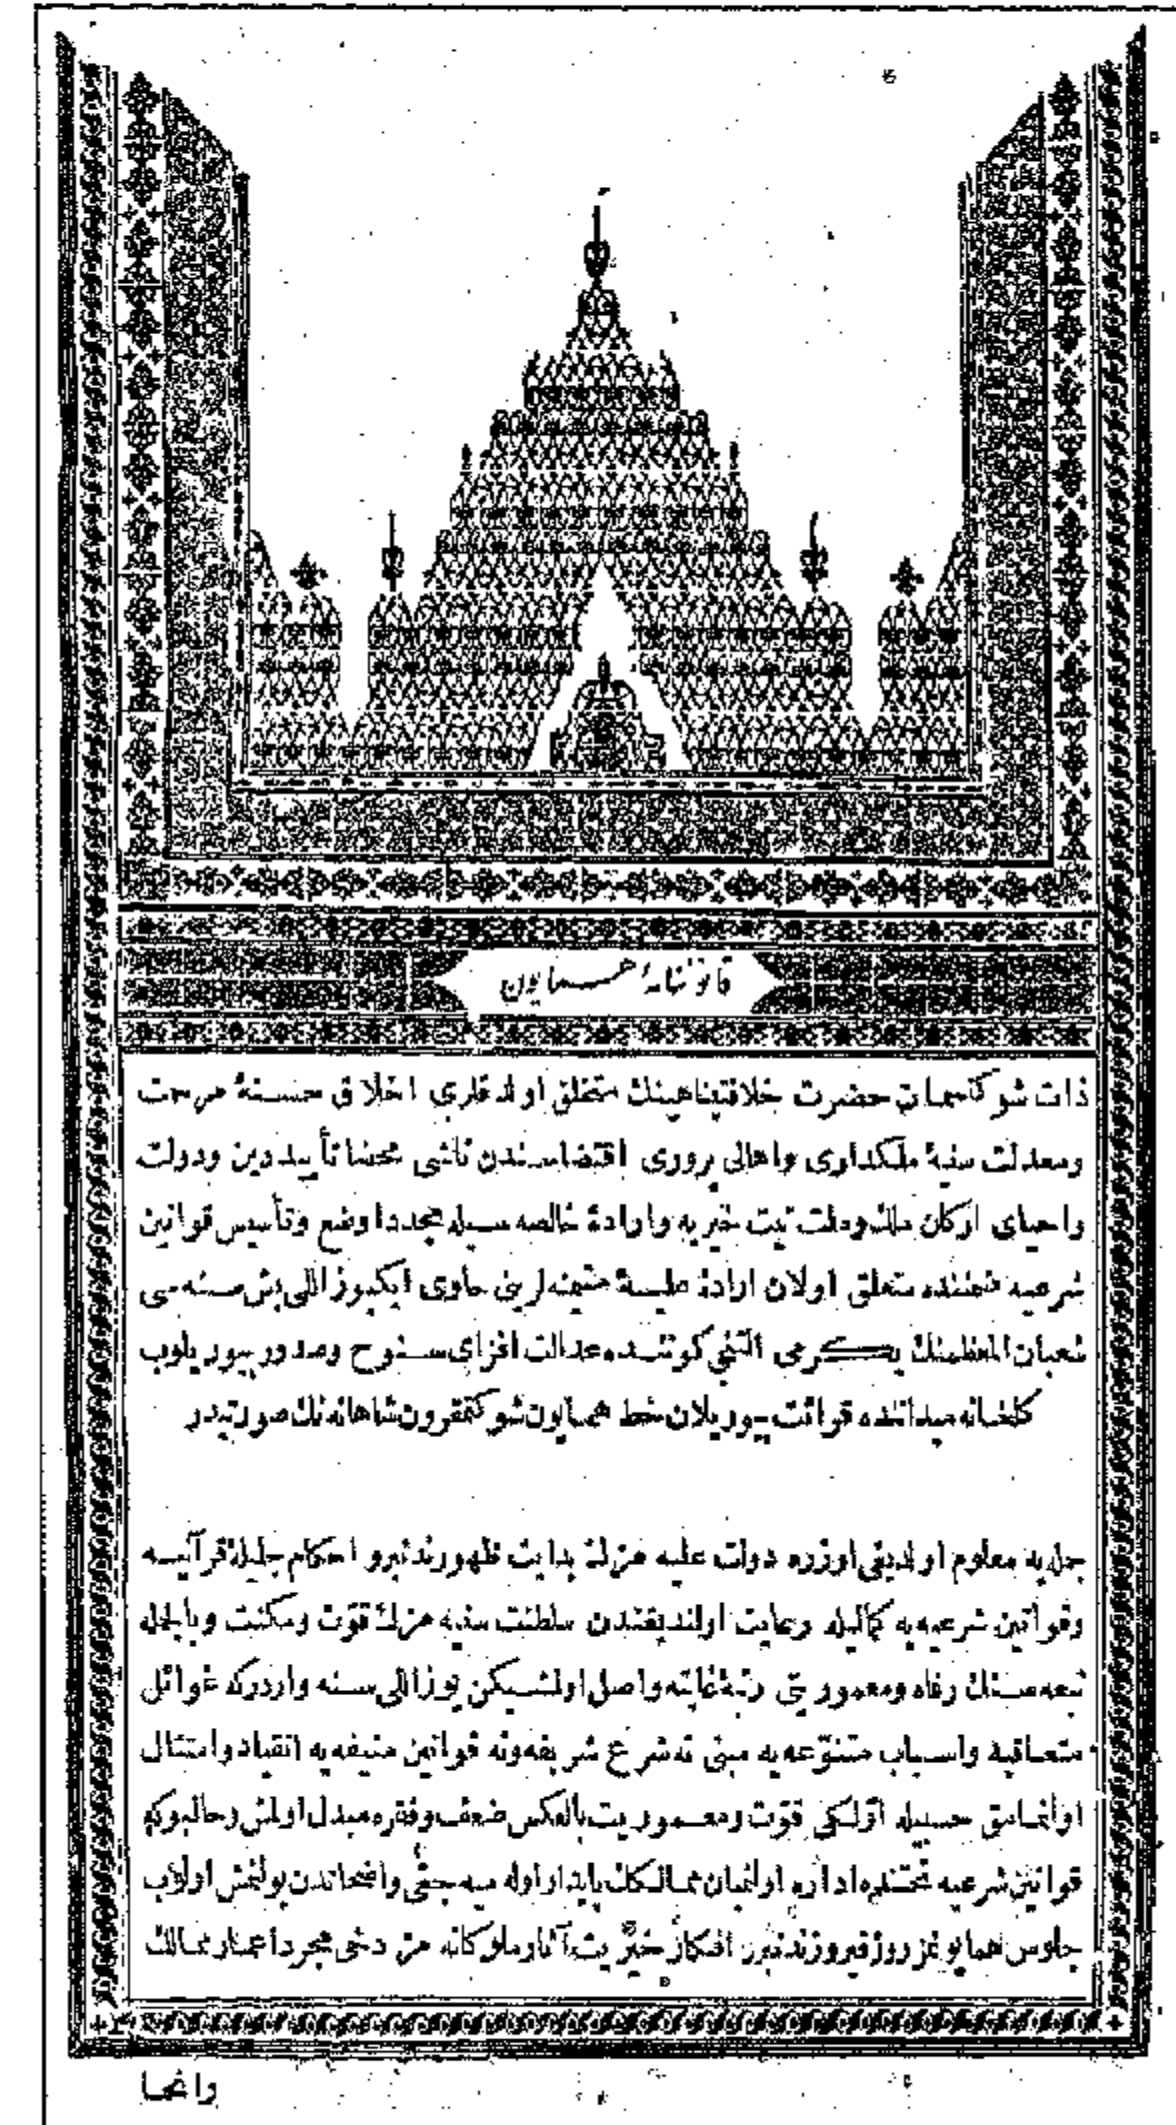 قانوننامۀ همايون
ذات شوكتسمات حضرت خلافتپناهينك متخلق اولدقلرى اخلاق حسنۀ مرحمت
ومعدلت سنيۀ ملكدارى واهالى پرورى اقتضاسندن ناشى محضا تأييد دين ودولت
واحياى اركان ملك وملت نيت خيريه وارادۀ خالصه سيله مجددا وضع وتأسيس قوانين
شرعيه ضمننده متعلق اولان ارادۀ عليۀ لرينى حاوى ايكيوز اللى بش سنه سى
شعبان المعظمنك يكرمى التنجى كوننده عدالت افزاى سنوح وصدور بيوريلوب
كلخانه ميداننده قرائت بيوريلان خط همايون شوكتمقرون شاهانه نك صورتيدر
جمله يه معلوم اولديغى اوزره دولت عليه مزك بدايت ظهورندنبرو احكام جليلۀ قرآنيه
وقوانين شرعيه يه كماليله رعايت اولنديغندن سلطنت سنيه مزك قوت ومكنت وبالجمله
تبعه سنك رفاه ومعموريتى رتبۀ غايته واصل اولمشيكن يوز اللى سنه واردركه غوائل
متعاقبه واسباب متنوعه يه مبنى نه شرع شريفه ونه قوانين منيفه يه انقياد وامتثال
اولنمامق حسبيله اولكى قوت ومعموريت بالعكس ضعف وفقره مبدل اولمش وحالبوكه
قوانين شرعيه تحتنده اداره اولنميان ممالكك پايدار اوله ميه جغى واضحاتدن بولنمش اولوب
جلوس همايونمز روز فيروزندنبرو افكار خيريت آثار ملوكانه مز دخى مجرد اعمار ممالك
وانحا